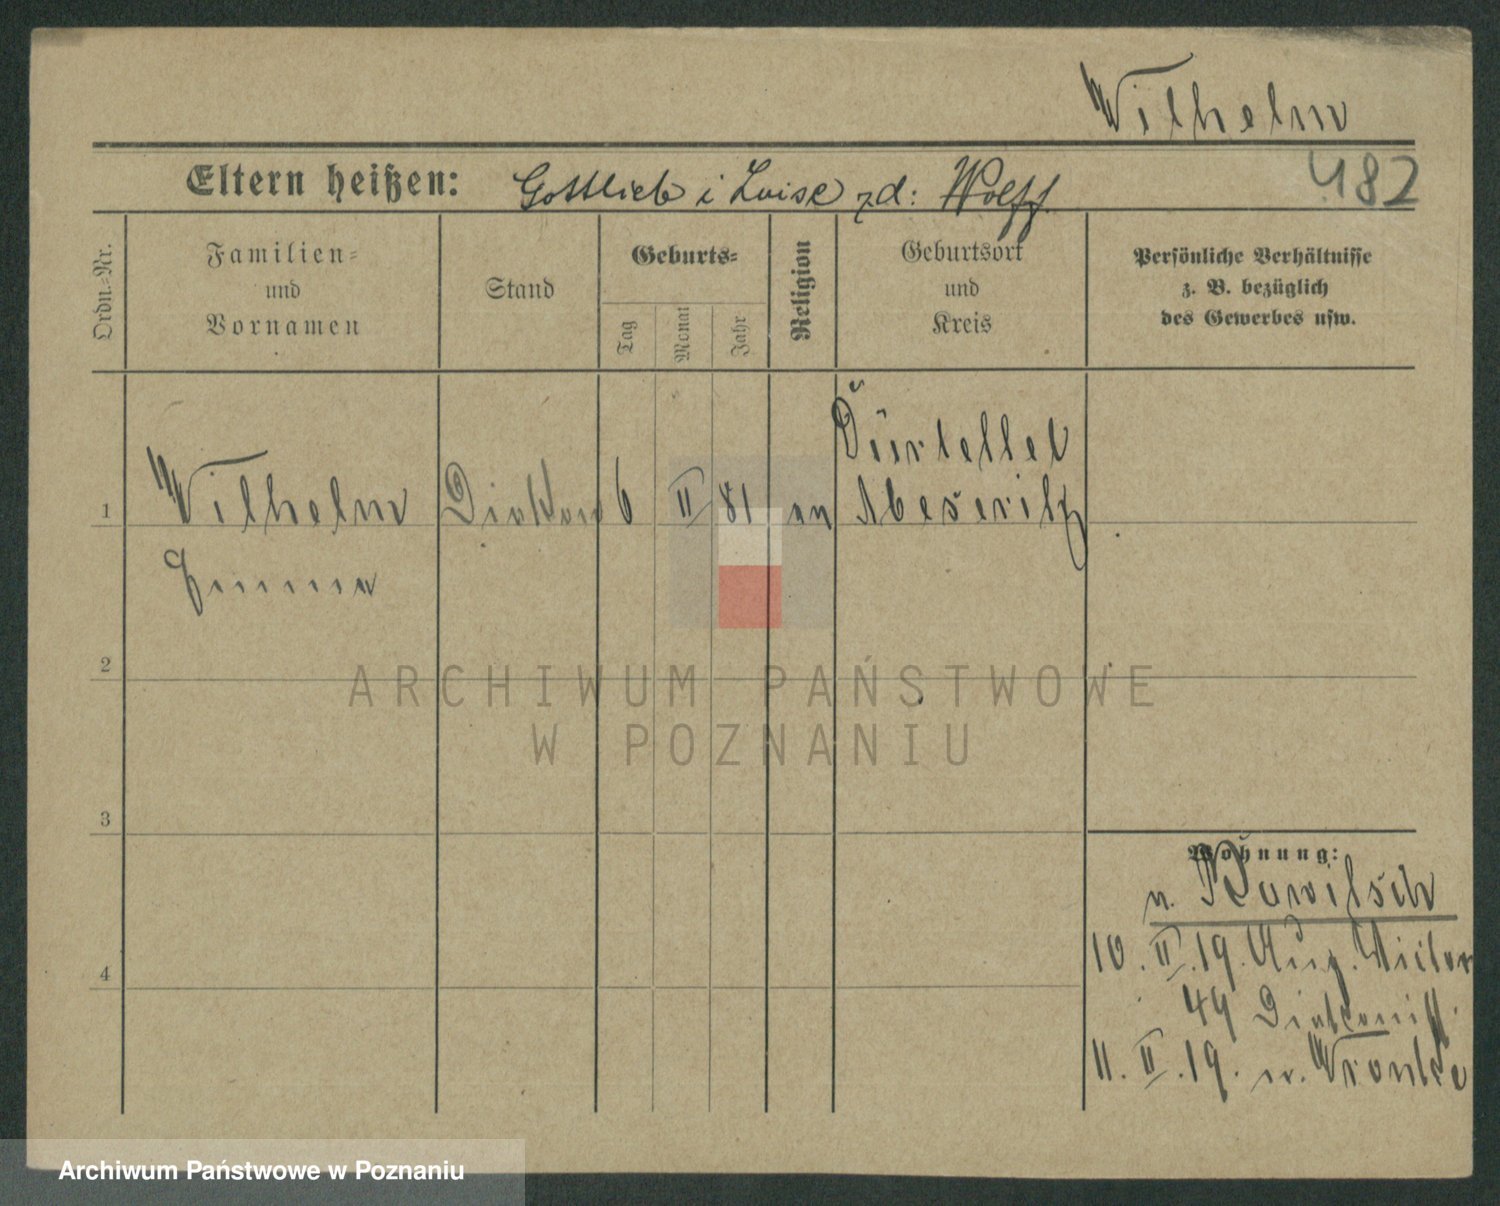 Wilhelm
482
Eltern heißen: Gottlieb i Luise zd: Wolff
Ordn.-Nr.
Familien-
und
Vornamen
Stand
Geburts-
Tag
Monat
Jahr
Religion
Geburtsort
und
Kreis
Persönliche Verhältnisse
z. B. bezüglich
des Gewerbes usw.
1
Wilhelm
Emma
Diakon
6 II 81
Meseritz
2
3
4
Wohnung:
v. Rawitsch
10. II. 19. Aug. Victor
49 Diakoniss.
11. II. 19. n. Wronke
ARCHIWUM PAŃSTWOWE
W POZNANIU
Archiwum Państwowe w Poznaniu